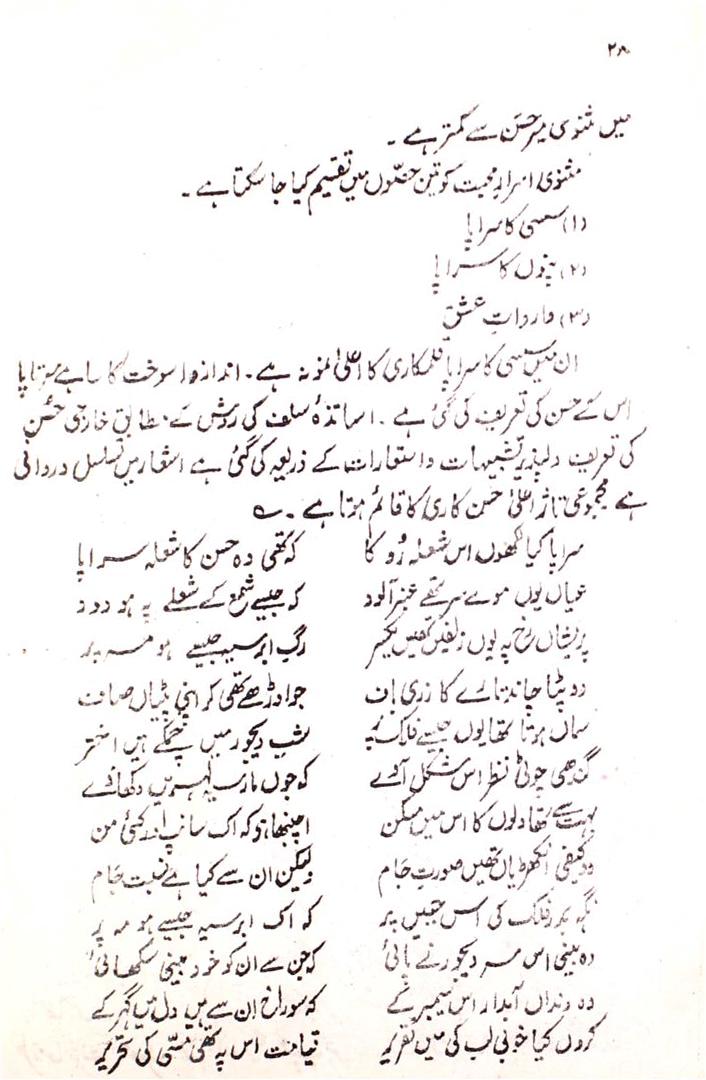 ۲۸۰
میں مثنوی میر حسن سے کمتر ہے ۔
مثنوی اسرارِ محبت کو تین حصّوں میں تقسیم کیا جا سکتا ہے ۔
(۱) سسی کا سراپا
(۲) پنوں کا سراپا
(۳) وارداتِ عشق
ان میں سسی کا سراپا قلمکاری کا اعلیٰ نمونہ ہے ۔ انداز واسوخت کا سا ہے سرتاپا
اس کے حسن کی تعریف کی گئی ہے ۔ اساتذۂ سلف کی روش کے مطابق خارجی حُسن
کی تعریف دلپذیر تشبیہات و استعارات کے ذریعہ کی گئی ہے اشعار میں تسلسل و روانی
ہے مجموعی تاثر اعلیٰ حسن کاری کا قائم ہوتا ہے ۔
سراپا کیا لکھوں اس شعلہ رُو کا کہ تھی وہ حسن کا شعلہ سراپا
عیاں یوں موے سر تھے عنبر آلود کہ جیسے شمع کے شعلے پہ ہو دود
پریشاں رخ پہ یوں زلفیں تھیں یکسر رگِ ابرِ سیہ جیسے ہو مہ پر
دوپٹا چاند تارے کا زری باف جو اوڑھے تھی کر اپنی پٹیاں صاف
سماں ہوتا تھا یوں جیسے فلک پر شبِ دیجور میں چمکے ہیں اختر
گندھی چوٹی نظر اس شکل آئے کہ جوں مارِ سیہ لہریں دکھائے
بہت سے تھا دلوں کا اس میں مسکن اچنبھا تو کہ اک سانپ اور کئی من
وہ کیفی انکھڑیاں تھیں صورتِ جام ولیکن ان سے کیا ہے نسبت جام
نگہ کی اس جبیں پر کہ اک ابرِ سیہ جیسے ہو مہ پر
وہ بینی اس نے پائی کہ جن سے ان کو خود بینی سکھائی
وہ دنداں آبدار اس سیمبر کے کہ سوراخ ان سے ہیں دل میں گہر کے
کروں کیا خوبی لب کی میں تقریر قیامت اس پہ تھی مسّی کی تحریر